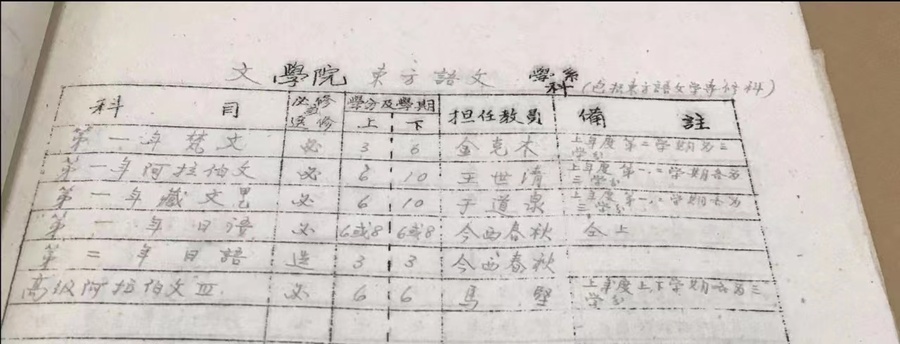 文學院 東方語文 學系科(包括東方語文學專修科)
科 目 必修或選修 學分及學期 上 下 担任教員 備 註
第一年梵文 必 3 6 金克木 上年度第二學期為三學分
第一年阿拉伯文 必 6 10 王世清 上年度第一.二學期各為三學分
第一年藏文 必 6 10 于道泉 上年度第一.二學期各為三學分
第一年日語 必 6或8 6或8 今西春秋 仝上
第二年日語 选 3 3 今西春秋
高級阿拉伯文Ⅲ 必 6 6 馬堅 上年度上下學期各為三學分